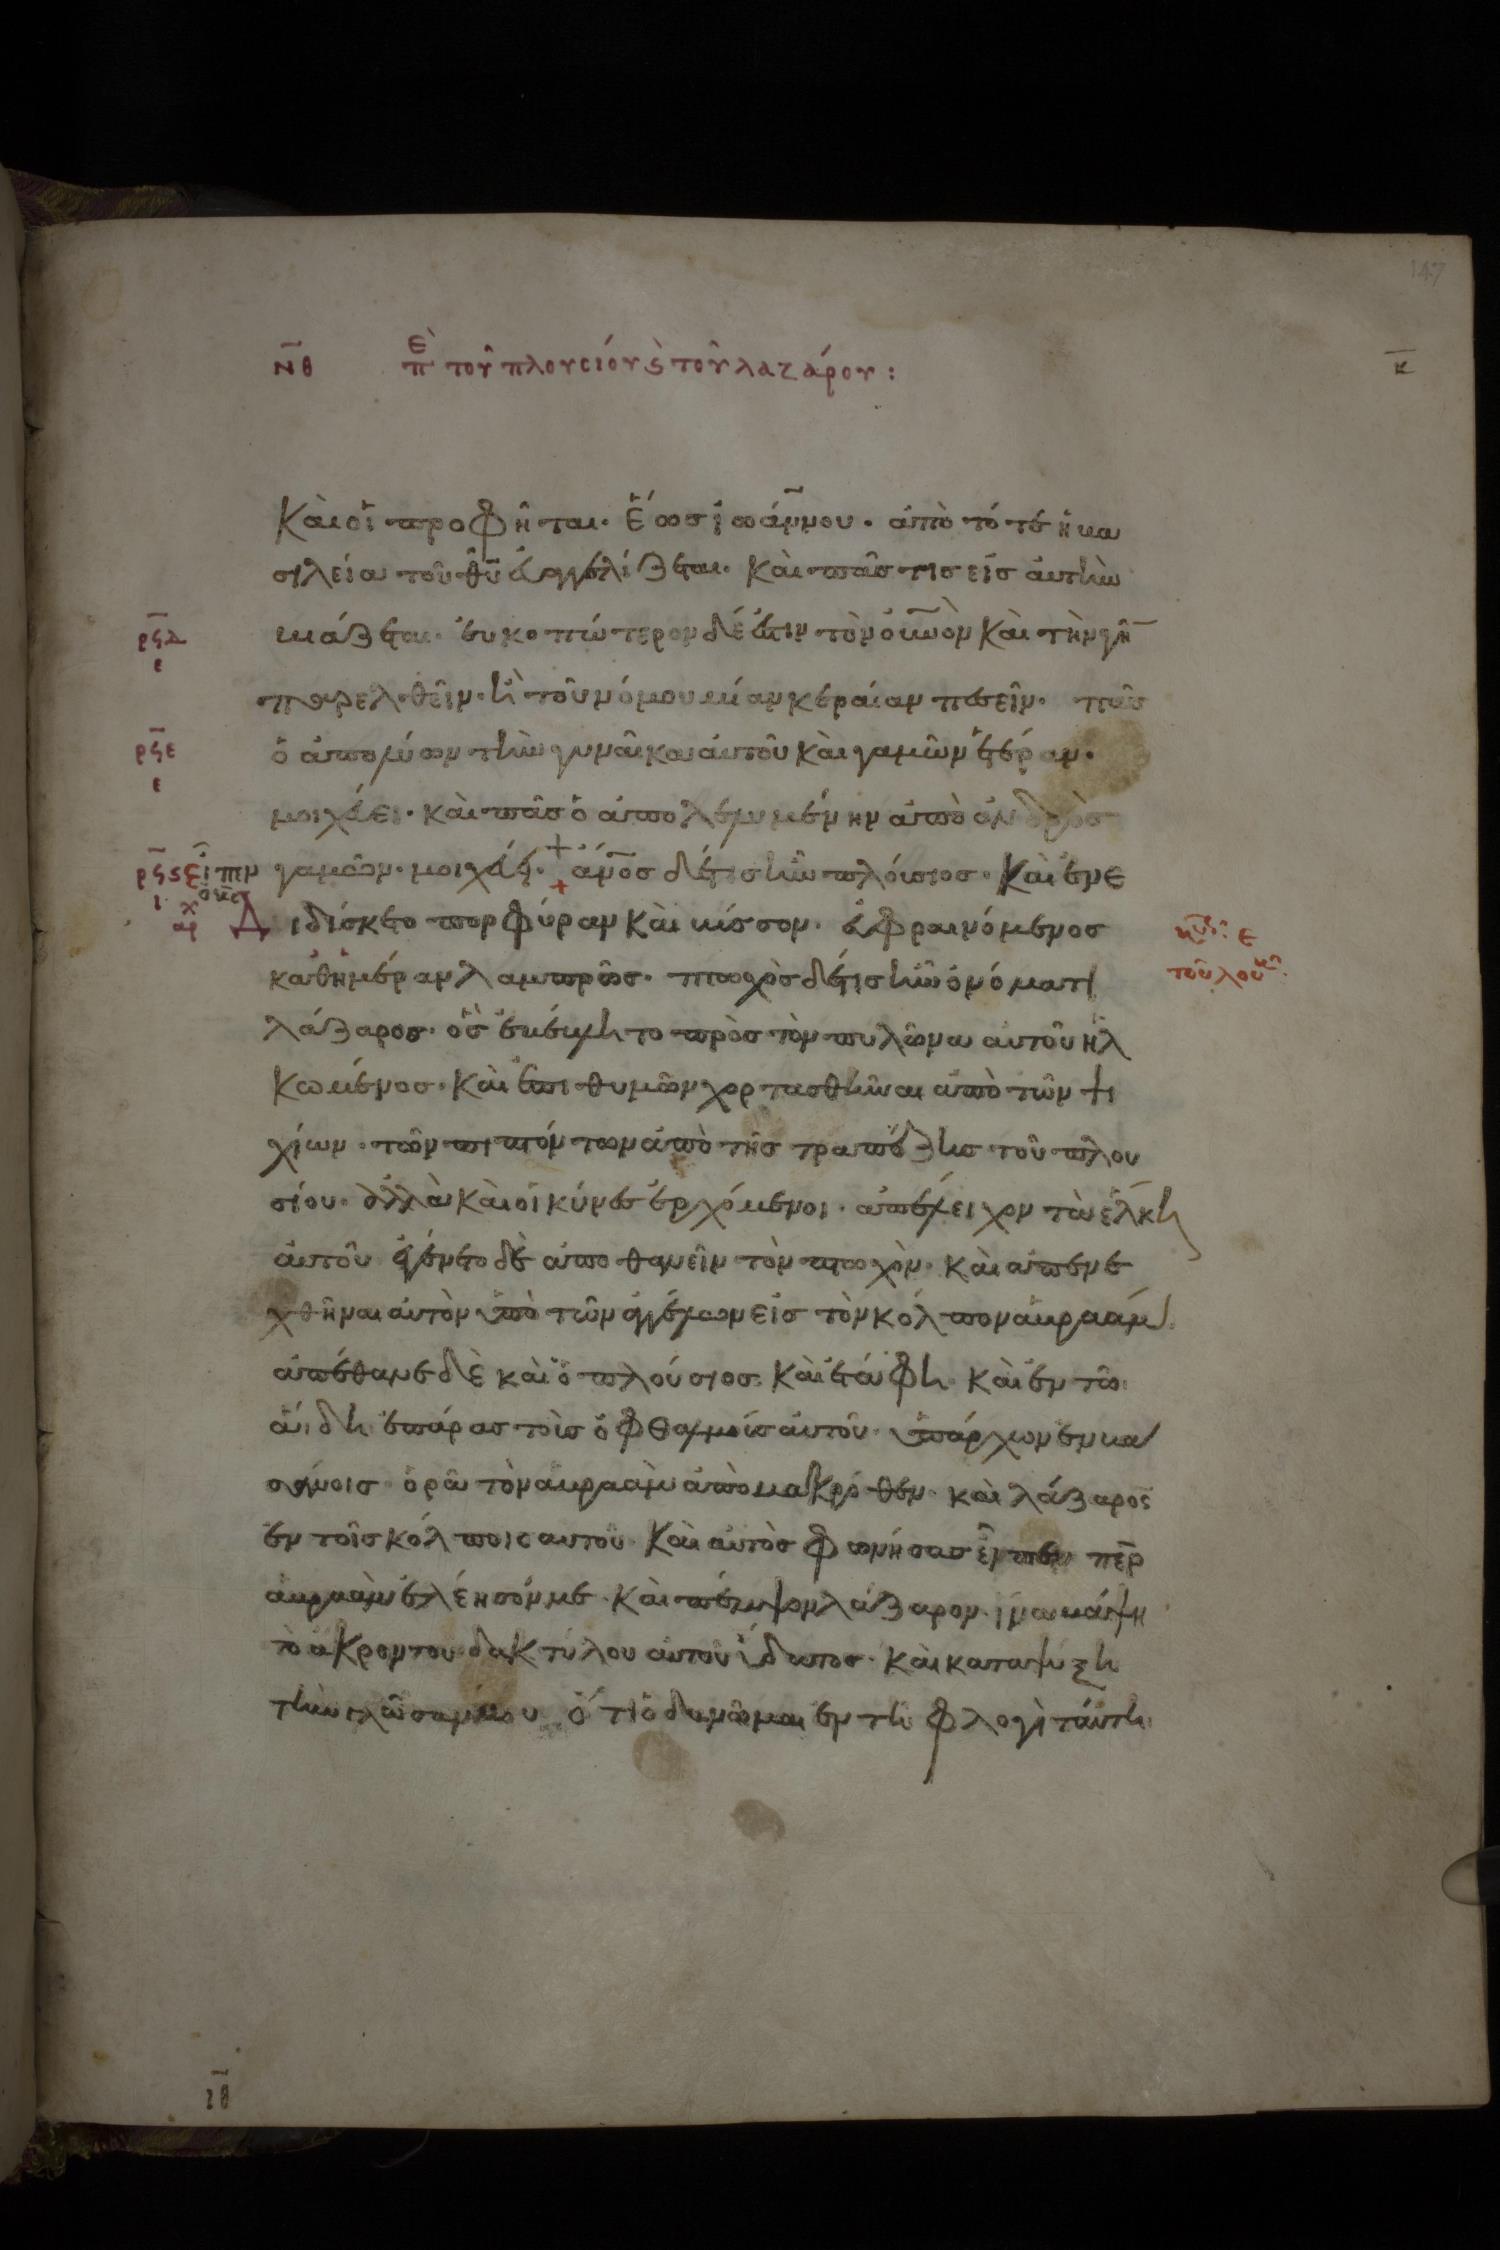 147
ν̅θ π̅ὲ τοῦ πλουσίου ϗ̀ τοῦ λαζάρου :
κ̅
Καὶ οἱ προφῆται· ἕωσ ἰωάννου· ἀπὸ τότε ἡ βα
σιλεία τοῦ θ̅υ̅ εὐαγγελίζεται· καὶ πᾶσ τισ εἰσ ἀυτὴν
ρ̅ϟδ βιάζεται· ἐυκοπώτερον δέ ἐστιν τὸν ὀυ̅ν̅ὸν καὶ τὴν γῆν
ε
παρελθεῖν· ἢ τοῦ νόμου μίαν κεραίαν πεσεῖν· πᾶσ
ρ̅ϟε ὁ ἀπολύων τὴν γυναῖκα ἀυτοῦ καὶ γαμῶν ἑτέραν·
ε
μοιχεύει· καὶ πᾶσ ὁ ἀπολελυμένην ἀπὸ ἀνδρὸσ
ρ̅ϟϛ εἶπεν ὁ κ̅ς̅ γαμῶν· μοιχεύει· + ἄν̅ο̅σ δέ τισ ἦν πλούσιοσ· Καὶ ἐνε
ι
αρχ διδύσκετο πορφύραν καὶ βύσσον· ἐυφραινόμενοσ
κυ̅ρ̅: ε
τοῦ λουκᾶ:
καθημέραν λαμπρῶσ· πτωχὸσ δέ τισ ἦν ὀνόματι
λάζαροσ· ὃσ ἐβέβλητο πρὸσ τὸν πυλῶνα αυτοῦ ἡλ
κωμένοσ· καὶ ἐπιθυμῶν χορτασθῆναι ἀπὸ τῶν ψι
χίων· τῶν πιπτόντων ἀπὸ τῆσ τραπέζησ τοῦ πλου
σίου· ἀλλὰ καὶ οἱ κύνεσ ἐρχόμενοι· ἀπέλειχον τὰ ἕλκη
ἀυτοῦ ἐγένετο δὲ ἀποθανεῖν τὸν πτωχὸν· καὶ ἀπενε
χθῆναι αὐτὸν ὑπὸ τῶν ἀγγέλων εἰσ τὸν κόλπον ἀβραάμ
ἀπέθανε δὲ καὶ ὁ πλούσιοσ· καὶ ἐτάφη· καὶ ἐν τῶ
ἅιδη ἐπάρασ τοὺσ ὀφθαλμοὺσ ἀυτοῦ· ὑπάρχων ἐν βα
σάνοισ· ὁρᾶ τὸν ἀβραὰμ ἀπὸ μακρόθεν· καὶ λάζαρον
ἐν τοῖσ κόλποισ αυτοῦ· Καὶ αὐτὸσ φωνήσασ εἶπεν π̅ερ
ἀβραὰμ ἐλέησόν με· καὶ πέμψον λάζαρον· ἵνα βάψη
τὸ ἄκρον του δακτύλου αὐτοῦ ὕδατοσ· καὶ καταψύξη
τὴν γλῶσσαν μου ὅτι ὀδυνῶμαι ἐν τῆ φλογὶ ταύτη
ι̅θ